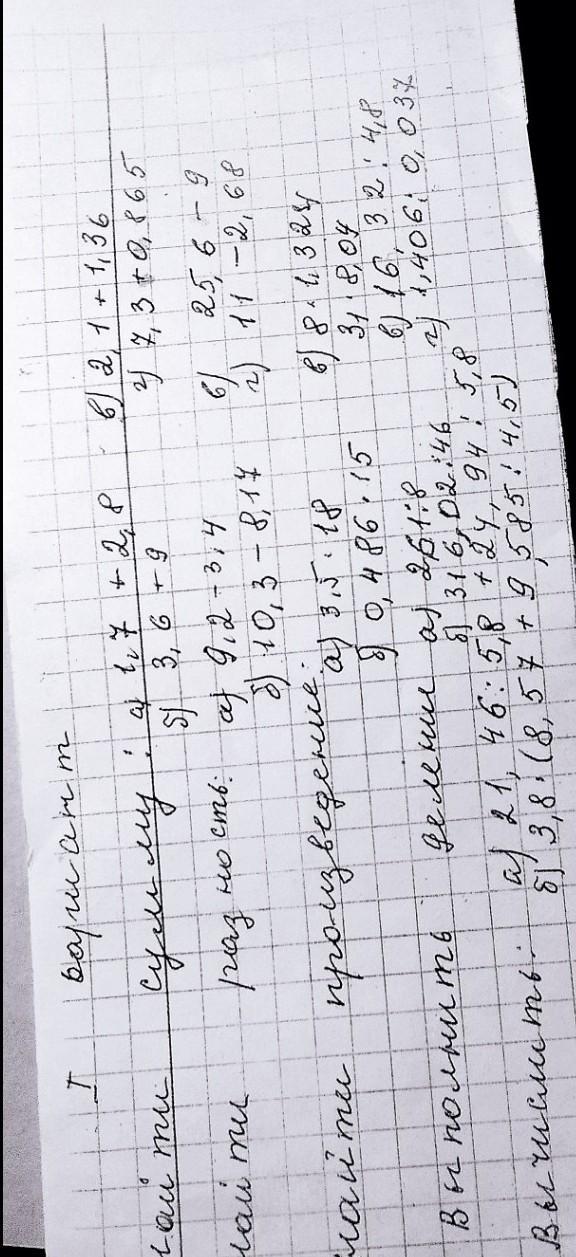 I вариант
найти сумму: а) 1,7 + 2,8 в) 2,1 + 1,36
б) 3,6 + 9 г) 7,3 + 0,865
найти разность: а) 9,2 - 3,4 в) 25,6 - 9
б) 10,3 - 8,17 г) 11 - 2,68
найти произведение: а) 3,5 · 18 в) 8 · 1,324
б) 0,486 · 15 31 · 8,04
Выполнить деление а) 261:8 в) 16,32 : 4,8
б) 316,02:46 г) 1,406 : 0,037
Вычислить: а) 21,46 : 5,8 + 24,94 : 5,8
б) 3,8 · (8,57 + 9,585 : 4,5)